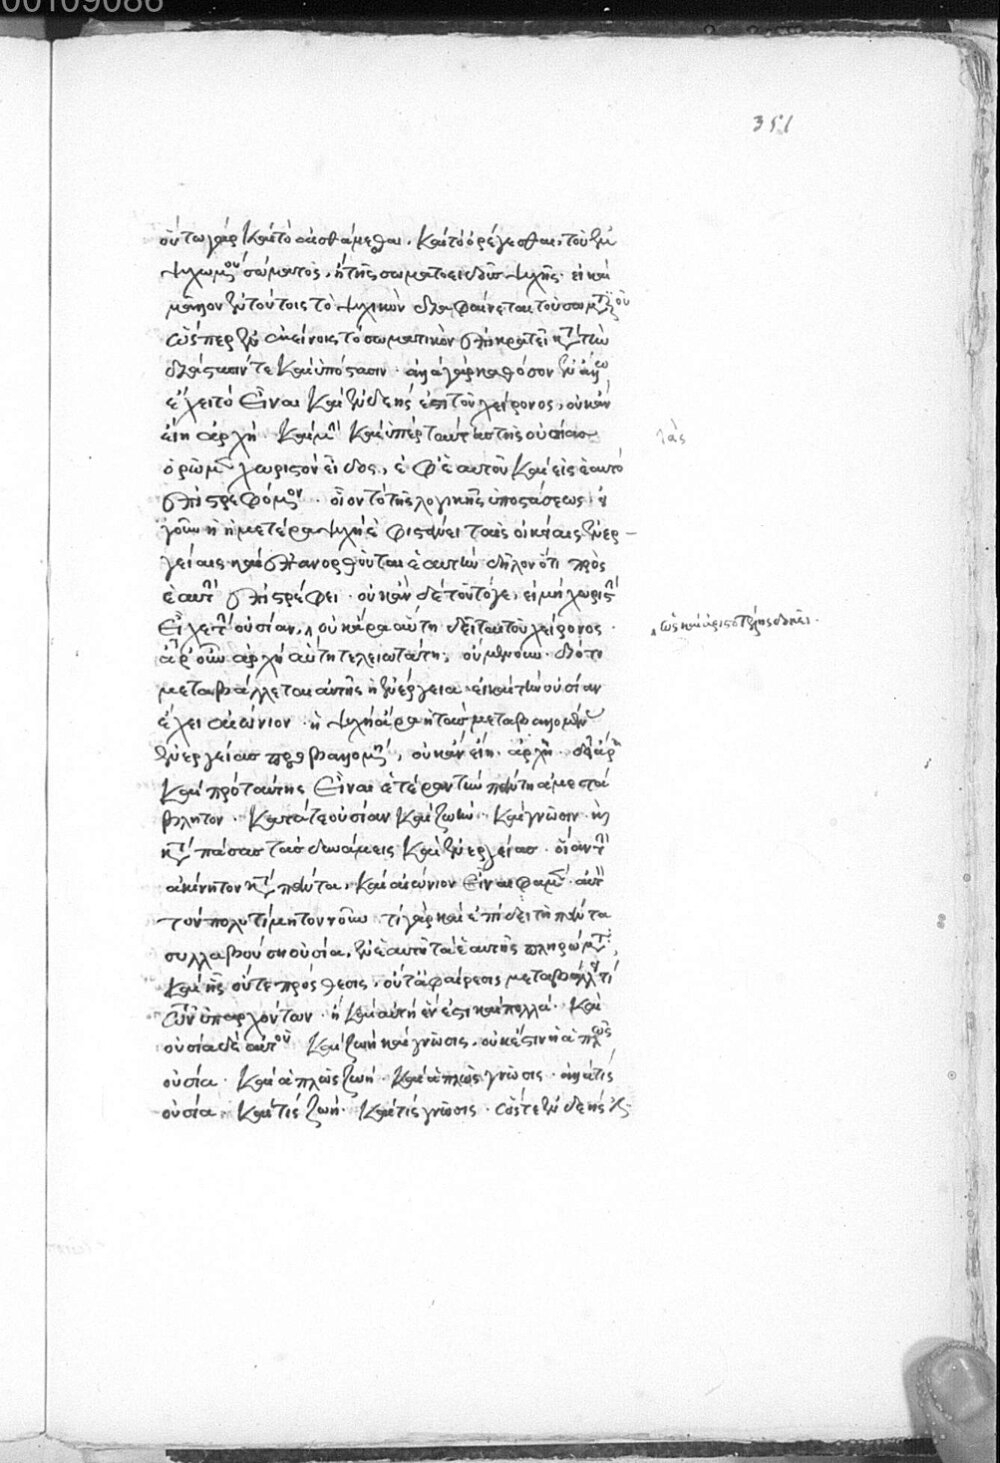 00109086
351
οὕτω γὰρ καὶ τὸ αἰσθάνεσθαι, καὶ τὸ ὀρέγεσθαι, τοῦ ἐμ
ψυχωμένου σώματος, ἢ τῆς σωματοειδοῦς ψυχῆς· εἰ καὶ
μᾶλλον ἐν τούτοις τὸ ψυχικὸν διαφαίνεται τοῦ σωματικοῦ
ὥσπερ ἐν ἐκείνοις τὸ σωματικὸν ἐπικρατεῖ κατὰ τὴν
διάστασίν τε καὶ ὑπόστασιν· ἀλλὰ γὰρ καθόσον ἐν ἄλλῳ
ἔχει τὸ εἶναι καὶ ἐνδεὴς ἐστὶ τοῦ χείρονος, οὐκ ἂν
εἴη ἀρχή· καὶ μὴν καὶ ὑπὲρ ταύτας τὰς οὐσίας
ὁρῶμεν χωριστὸν εἶδος, ἐφ' ἑαυτοῦ καὶ εἰς ἑαυτὸ
ἐπιστρεφόμενον· οἷον τὸ τῆς λογικῆς ὑποστάσεως· ἡ
γοῦν ἡμετέρα ψυχὴ ἐφιστάνει ταῖς οἰκείαις ἐνερ-
γείαις καὶ ἐπανορθοῦται ἑαυτὴν δηλονότι πρὸς
ἑαυτὴν ἐπιστρέφει· οὐκ ἂν δὲ τοῦτό γε, εἰ μὴ χωριστὴν
εἶχε τὴν οὐσίαν, οὐκ ἄρα αὕτη δεῖται τοῦ χείρονος·
ὡς καὶ ἀριστοτέλης δοκεῖ·
ἆρ' οὖν ἀρχὴ αὕτη τελειωτάτη; οὐμενοῦν· διότι
μεταβάλλεται αὐτῆς ἡ ἐνέργεια εἰ καὶ τὴν οὐσίαν
ἔχει αἰώνιον· ἡ ψυχὴ ἄρα ἡ τὰς μεταβαλλομένας
ἐνεργείας προβαλλομένη, οὐκ ἂν εἴη ἀρχή· δεῖ ἄρα
καὶ πρὸ ταύτης εἶναι ἑτέραν τὴν πάντῃ ἀμετά
βλητον· κατά τε οὐσίαν καὶ ζωὴν· καὶ γνῶσιν· καὶ
κατὰ πάσας τὰς δυνάμεις καὶ ἐνεργείας· οἷαν τὴν
ἀκίνητον κατὰ πάντα, καὶ αἰώνιον εἶναι φαμὲν· αὐτὸν
τὸν πολυτίμητον νοῦν· τί γὰρ καὶ ἐπιδεῖ τῇ πάντα
συλλαβούσῃ οὐσίᾳ, ἐν ἑαυτῇ τὰ ἑαυτῆς πληρώματα,
καὶ ἧς οὔτε πρόσθεσις, οὔτ' ἀφαίρεσις μεταβάλλει τί
τῶν ὑπαρχόντων· ἢ καὶ αὐτὴ ἕν ἐστι καὶ πολλά· καὶ
οὐσία δὲ αὐτοῦ καὶ ζωὴ καὶ γνῶσις, οὐκ ἔστιν ἡ ἁπλῶς
οὐσία· καὶ ἁπλῶς ζωὴ· καὶ ἁπλῶς γνῶσις· ἀλλὰ τὶς
οὐσία· καὶ τὶς ζωή· καὶ τὶς γνῶσις· ὥστε ἐνδεής ἐστι·